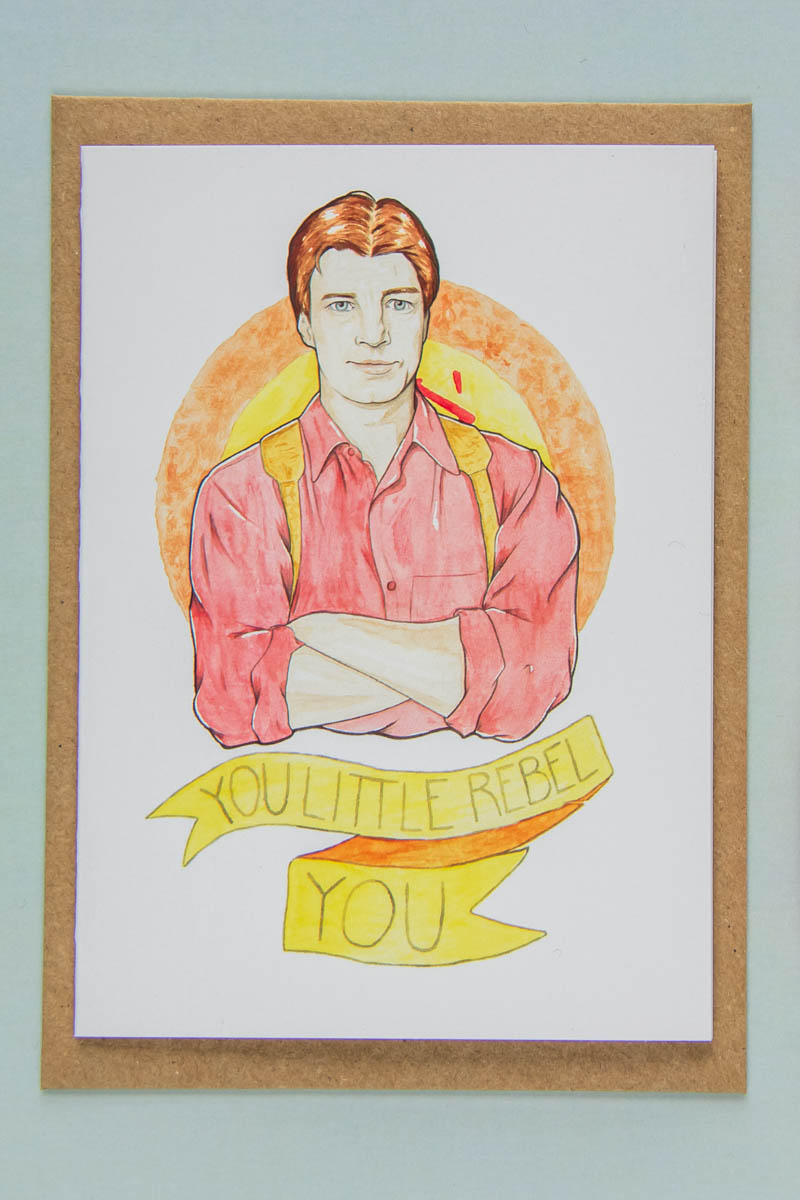 YOU LITTLE REBEL
YOU